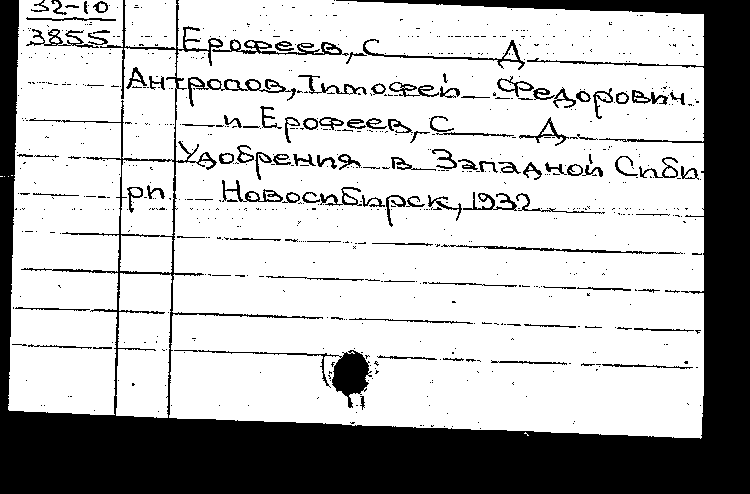 32-10
3855
Ерофеев, С Д.
Антропов, Тимофей Федорович.
и Ерофеев, С Д.
Удобрения в Западной Сиби-
ри. Новосибирск, 1932